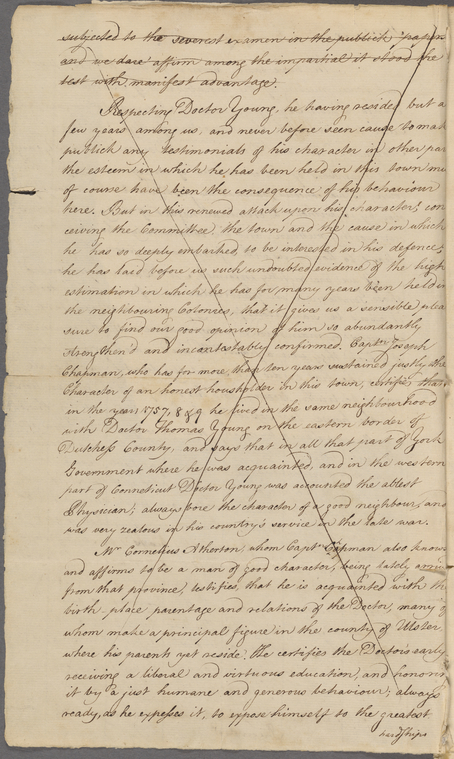 subjected to the severest examen in the publick papers
and we dare affirm among the impartial it stood the
test with manifest advantage.
Respecting Doctor Young, he having resided but a
few years among us, and never before seen cause to mak
publick any testimonials of his character in other par
the esteem in which he has been held in this town mu
of course have been the consequence of his behaviour
here. But in this renewed attack upon his character, con
ceiving the Committee the town and the cause in which
he has so deeply embarked, to be interested in his defence,
he has laid before us such undoubted evidence of the high
estimation in which he has for many years been held in
the neighbouring Colonies, that it gives us a sensible plea
sure to find our good opinion of him so abundantly
strengthen'd and incontestably confirmed. Captn Joseph
Chapman, who has for more, than ten years sustained justly the
Character of an honest housholder in this town, certifies that
in the years 1757, 8 & 9 he lived in the same neighbourhood
with Doctor Thomas Young on the eastern border of
Dutchess County, and says that in all that part of York
Government where he was acquainted, and in the western
part of Connecticut Doctor Young was accounted the ablest
Physician; always bore the character of a good neighbour, and
was very zealous in his country's service in the late war.
Mr Cornelius Atherton, whom Captn Chapman also knows
and affirms to be a man of good character, being lately arriv
from that province, testifies, that he is acquainted with th
birth place parentage and relations of the Doctor, many of
whom make a principal figure in the county of Ulster
where his parents yet reside. He certifies the Doctors early
receiving a liberal and virtuous education, and honorin
it by a just humane and generous behaviour; always
ready, as he expesses it, to expose himself to the greatest
hardships